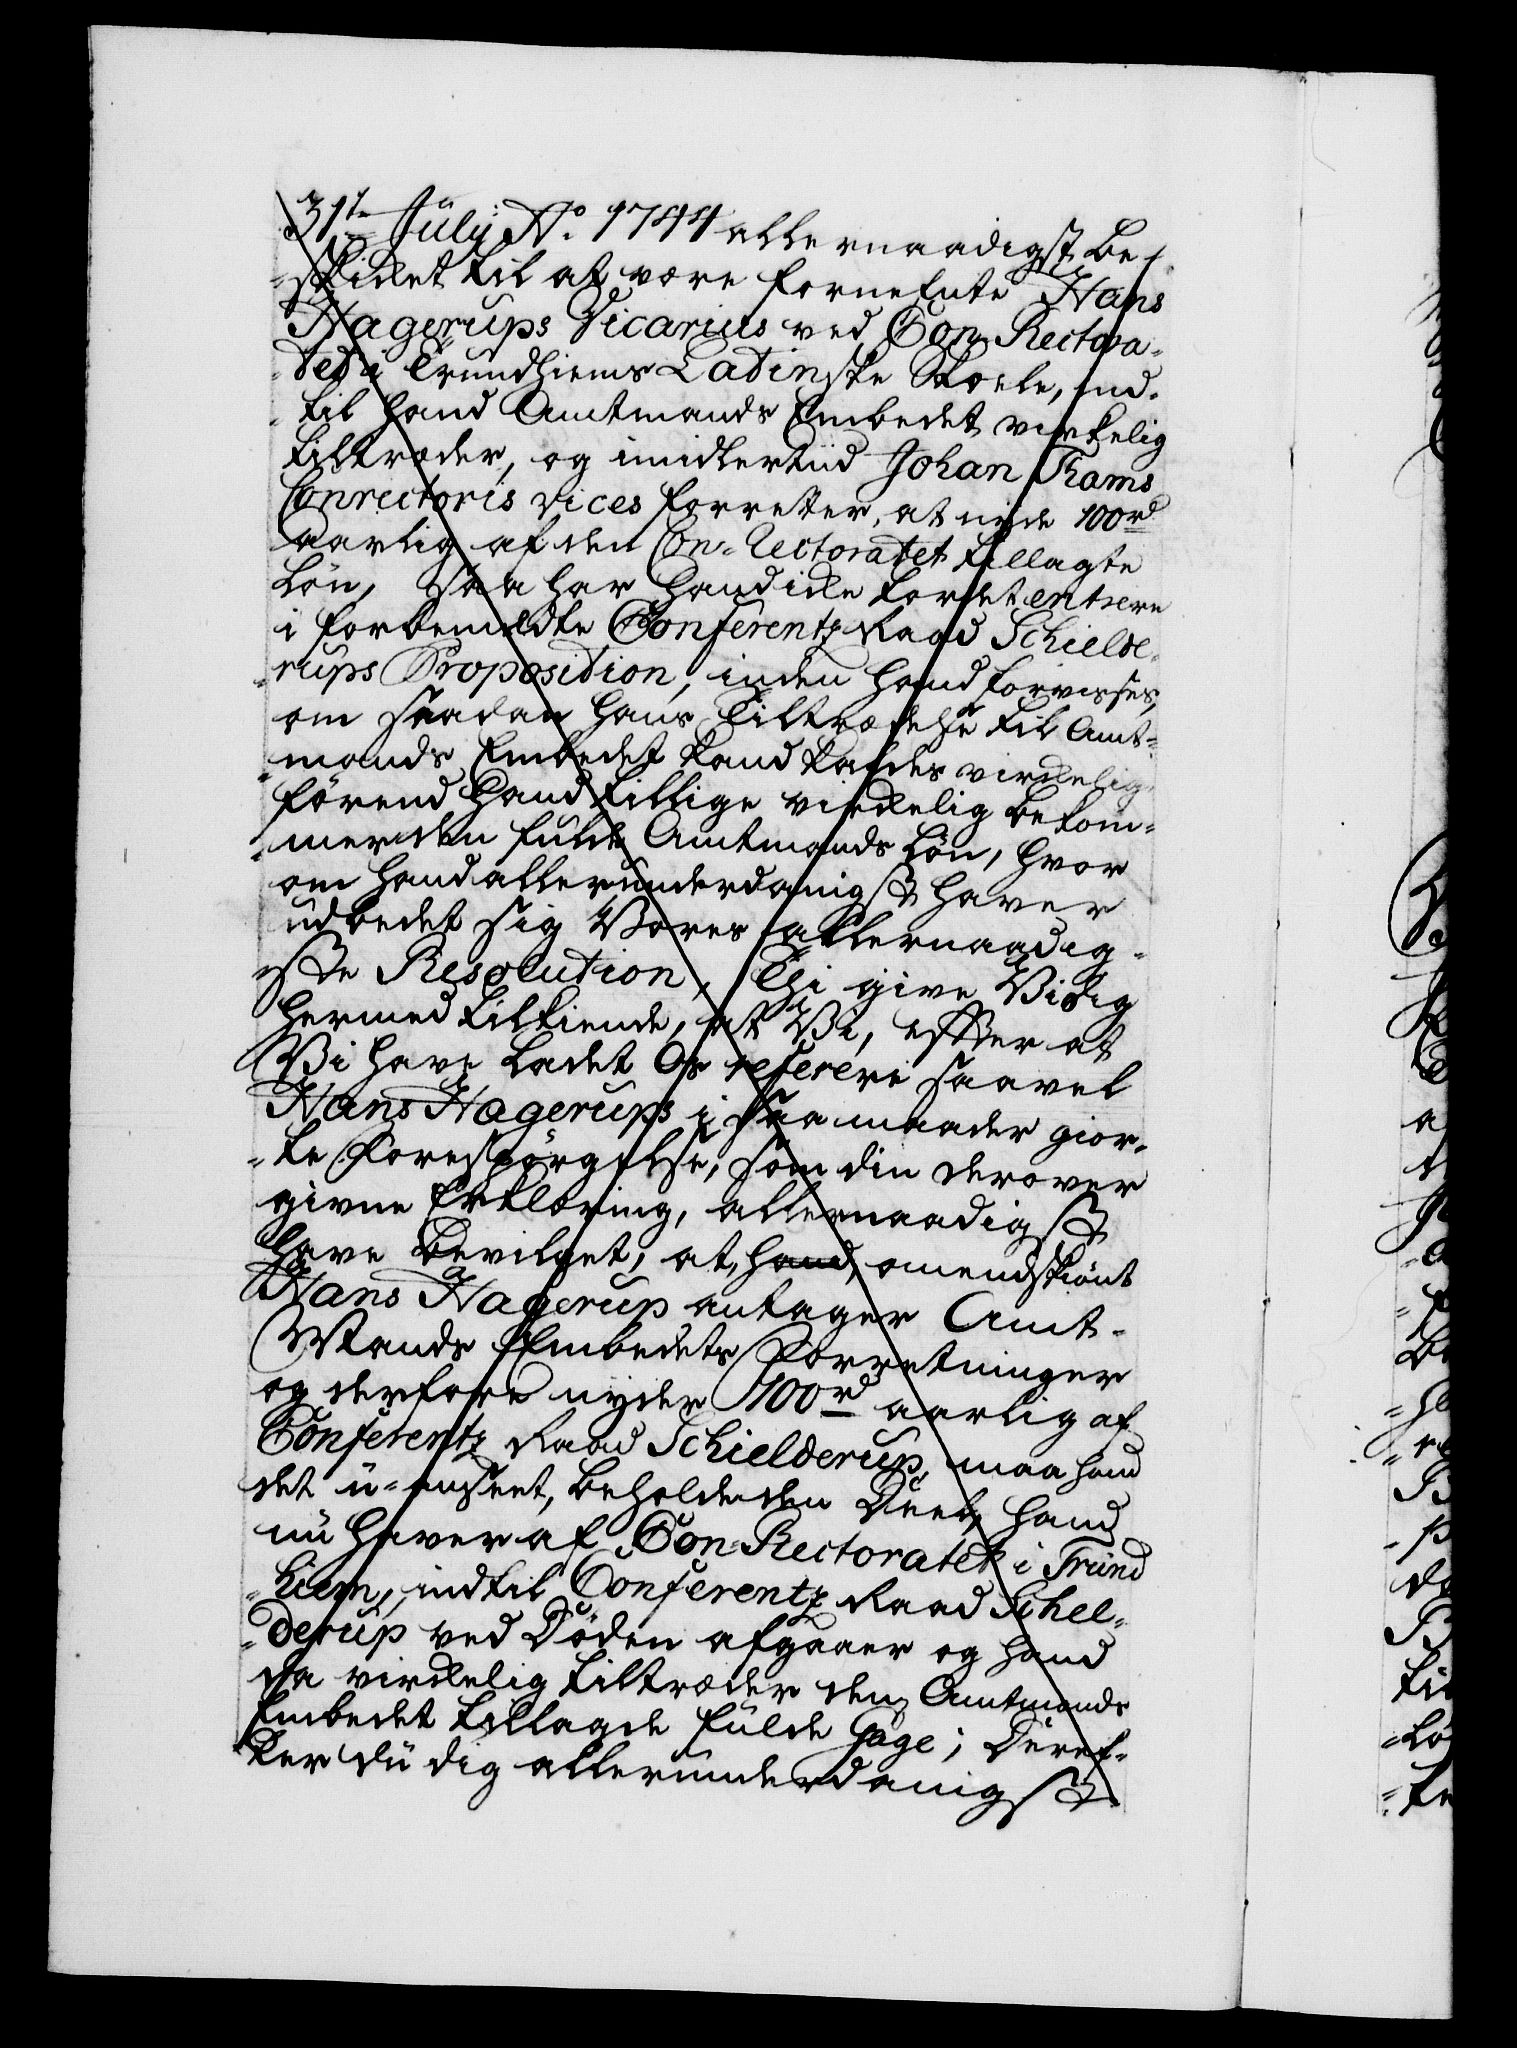 31te July Ao. 1744 allernaadigst be-
-skicket til at være fornefnte Hans
Hagerups Vicarius ved Con-Rectora-
-tet i Trundhiems Latinske Skoele, ind-
-til hand Amtmands Embedet virkelig
tiltræder, og imidlertiid Johan Rams
Conrectoris vices forretter, at nyde 100 rd
aarlig af den Con-Rectoratet tillagte
Løn, saa har hand icke tordet entrere
i forbemeldte Conferentz Raad Schielde-
-rups Proposition, inden hand forvisses,
om saadan hans Tiltrædelse til Amt-
-mands Embedet kand kaldes virckelig,
førend hand tillige virckelig bekom-
-mer den fulde Amtmands Løn, hvor
om hand allerunderdanigst haver
udbedet sig Vores allernaadig-
-ste Resolution, Thi give Vi dig
hermed tilkiende, at Vi, efter at
Vi have ladet Os referere saavel
Hans Hagerups i saa maader gior-
-te Forespørgelse, som din derover
givne Erklæring, allernaadigst
have bevilget, at, hand, omendskiønt
Hans Hagerup antager Amt-
Mands Embedets Forretninger
og derfore nyder 100 rd aarlig af
Conferentz Raad Schielderup, maa hand
det u-anseet, beholde den Deel, hand
nu haver af Con-Rectoratet i Trund
-hiem, indtil Conferentz Raad Schel-
-derup ved Døden afgaaer og hand
da virckelig tiltræder den Amtmands
Embedet tillagde fulde Gage; Deref-
ter du dig allerunderdanigst